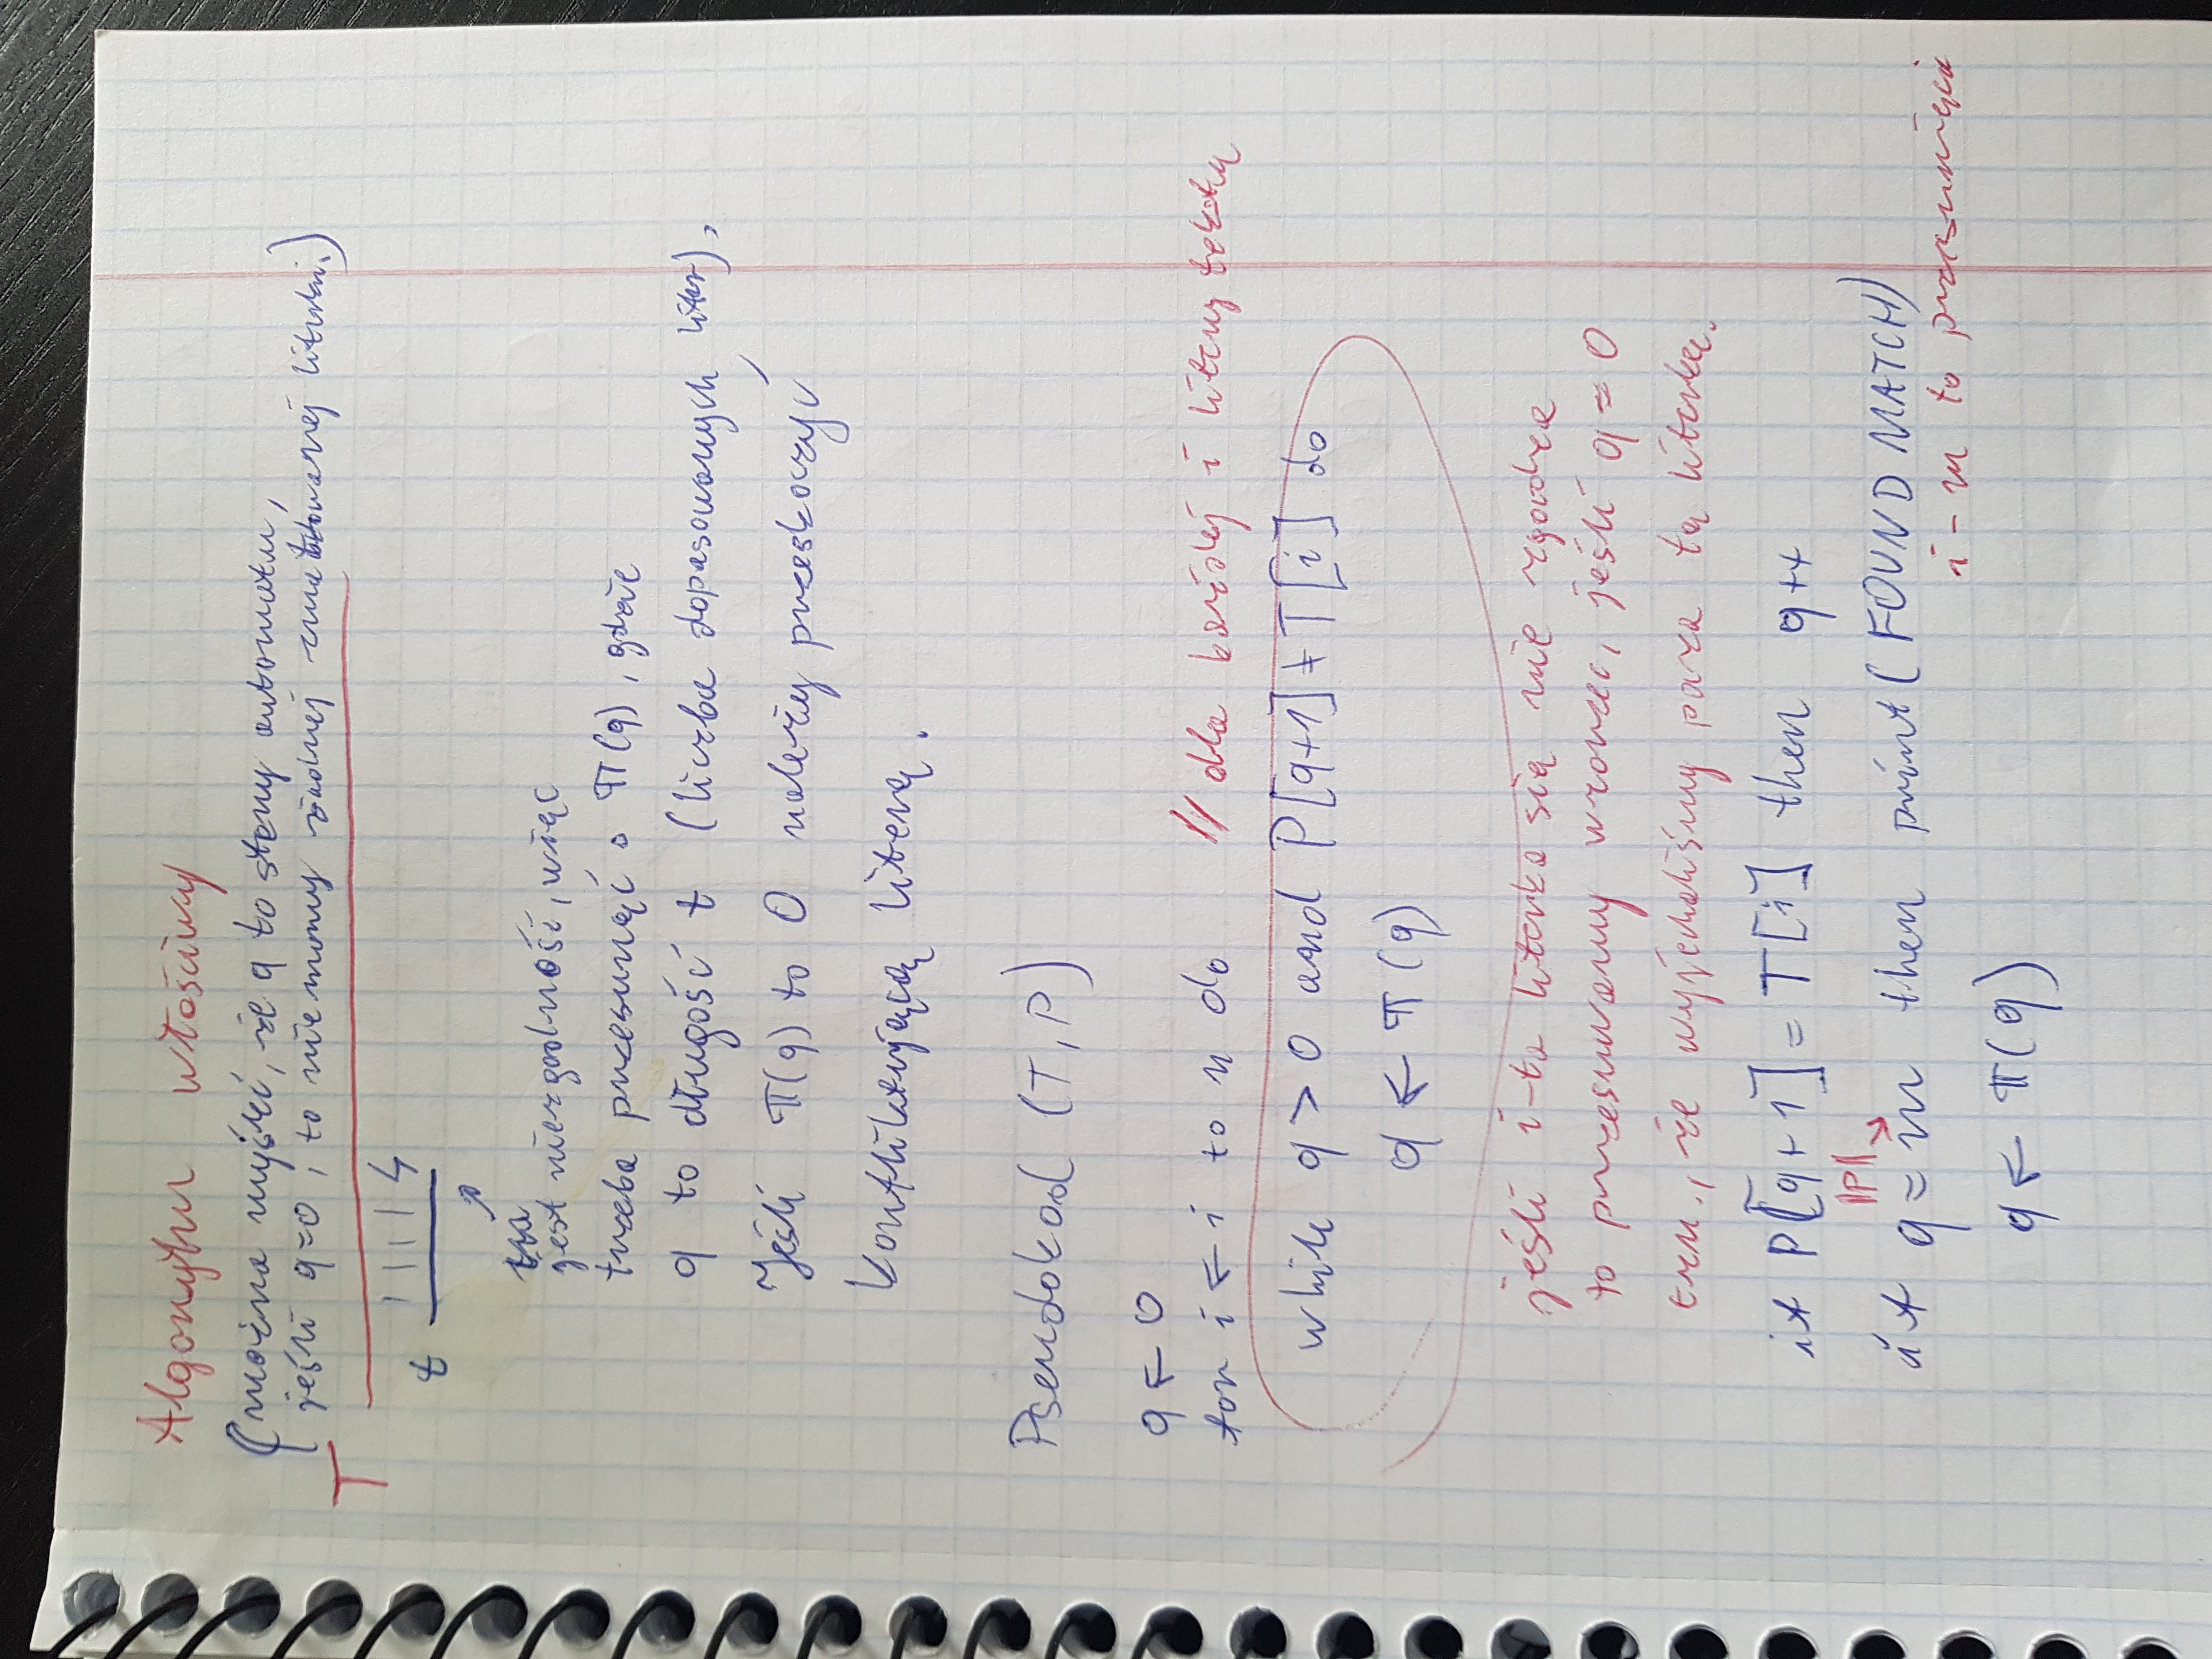 Algorytm właściwy
(można myśleć, że q to stany automatu,
jeśli q=0, to nie mamy żadnej zmatchowanej literki.)
T
t
jest niezgodność, więc
trzeba przesunąć o π(q), gdzie
q to długość t (liczba dopasowanych liter).
Jeśli π(q) to 0 należy przeskoczyć
konfliktującą literę.
Pseudokod (T, P)
q ← 0
for i ← i to n do // dla każdej i litery tekstu
while q > 0 and P[q+1] ≠ T[i] do
q ← π(q)
jeśli i-ta literka się nie zgadza
to przesuwamy wzorzec, jeśli q = 0
tzn., że wyjechaliśmy poza tą literkę.
if P[q+1] = T[i] then q++
|P|
if q = m then print (FOUND MATCH)
i - m to przesunięcie
q ← π(q)